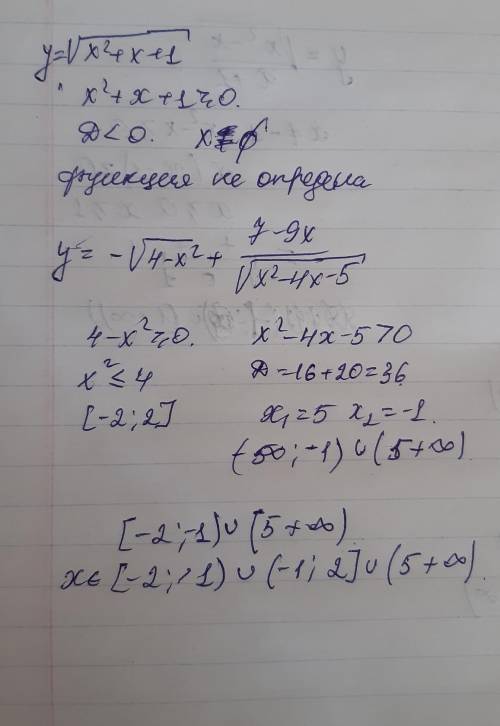 y=√(x²+x+1)
x²+x+1≥0.
D<0. x ∅
функция не определа
y= -√(4-x²) + (7-9x)/√(x²-4x-5)
4-x²≥0. x²-4x-5>0
x²≤4 D=16+20=36
[-2;2] x₁=5 x₂=-1.
(-∞;-1)∪(5+∞)
[-2;-1)∪(5+∞)
x∈[-2;-1)∪(-1;2]∪(5+∞).